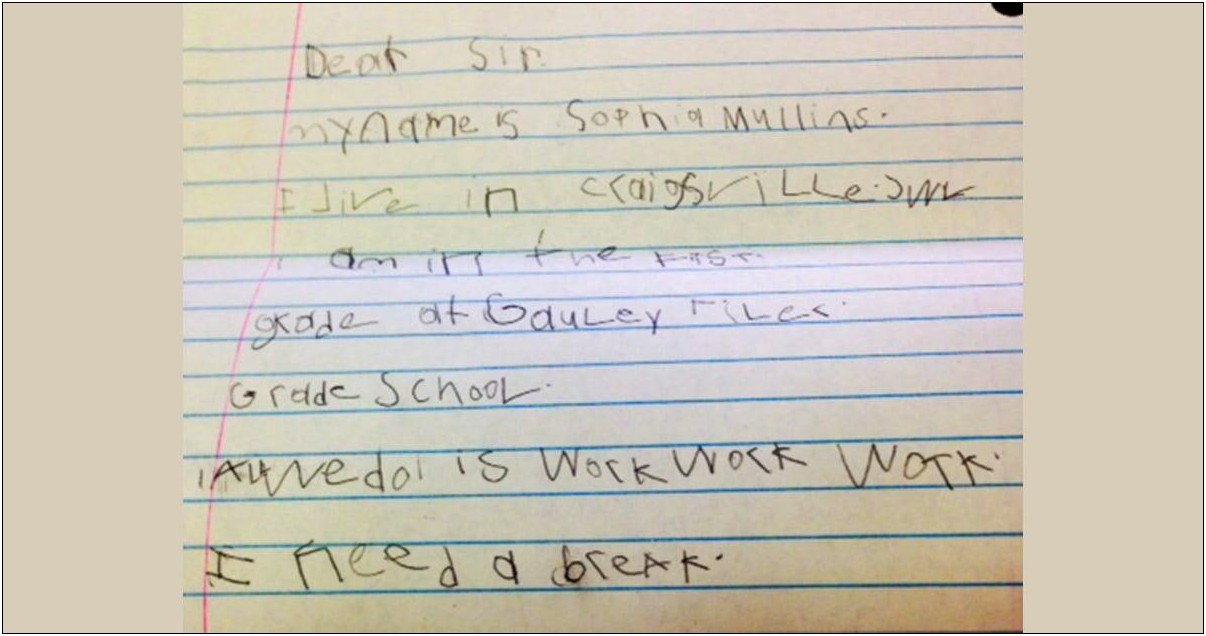 Dear Sir.
my name is Sophia Mullins.
I live in craigsville. WV
i am in the
grade at Gauley
Grade School.
is Work Work Work.
I need a break.